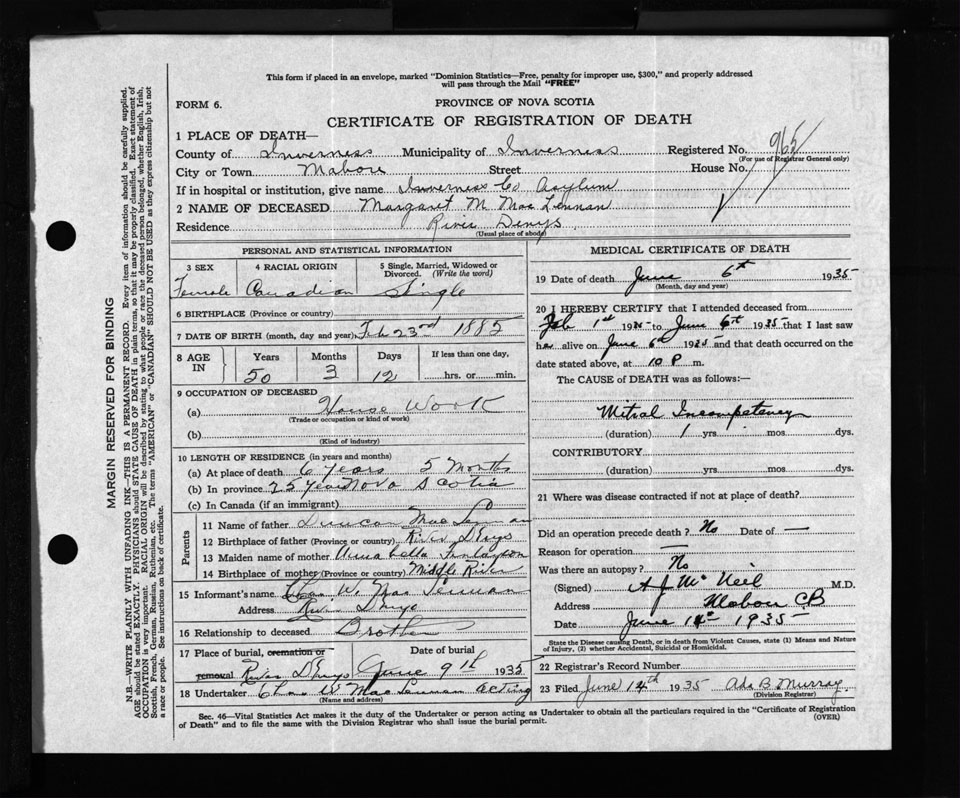 This form if placed in an envelope, marked "Dominion Statistics—Free, penalty for improper use, $300," and properly addressed
will pass through the Mail "FREE"
FORM 6.
PROVINCE OF NOVA SCOTIA
CERTIFICATE OF REGISTRATION OF DEATH
1 PLACE OF DEATH—
County of Inverness Municipality of Inverness Registered No. 965
(For use of Registrar General only)
City or Town Mabou Street House No.
If in hospital or institution, give name Inverness Co Asylum
2 NAME OF DECEASED Margaret M. MacLennan
Residence River Denys
(Usual place of abode)
PERSONAL AND STATISTICAL INFORMATION
3 SEX 4 RACIAL ORIGIN 5 Single, Married, Widowed or
Divorced. (Write the word)
Female Canadian Single
6 BIRTHPLACE (Province or country)
7 DATE OF BIRTH (month, day and year) Feb 23rd 1885
8 AGE IN Years Months Days If less than one day,
50 3 12 hrs. or min.
9 OCCUPATION OF DECEASED
(a) House Work
(Trade or occupation or kind of work)
(b)
(Kind of industry)
10 LENGTH OF RESIDENCE (in years and months)
(a) At place of death 6 Years 5 Months
(b) In province 25 Years Nova Scotia
(c) In Canada (if an immigrant)
Parents
11 Name of father Duncan MacLennan
12 Birthplace of father (Province or country) River Denys
13 Maiden name of mother Annabella Finlayson
14 Birthplace of mother (Province or country) Middle River
15 Informant's name Chas W. MacLennan
Address River Denys
16 Relationship to deceased Brother
17 Place of burial, cremation or Date of burial
removal River Denys June 9th 1935
18 Undertaker Chas W MacLennan acting
(Name and address)
MEDICAL CERTIFICATE OF DEATH
19 Date of death June 6th 1935
(Month, day and year)
20 I HEREBY CERTIFY that I attended deceased from
Feb 1st 1935 to June 6th 1935 that I last saw
her alive on June 6th 1935 and that death occurred on the
date stated above, at 10 P m.
The CAUSE OF DEATH was as follows:—
Mitral Incompetency
(duration) 1 yrs. mos. dys.
CONTRIBUTORY
(duration) yrs. mos. dys.
21 Where was disease contracted if not at place of death?
Did an operation precede death? No Date of —
Reason for operation —
Was there an autopsy? No
(Signed) A J McNeil M.D.
Address Mabou CB
Date June 14th 1935
State the Disease causing Death, or in death from Violent Causes, state (1) Means and Nature
of Injury, (2) whether Accidental, Suicidal or Homicidal.
22 Registrar's Record Number
23 Filed June 14th 1935 Ada B. Murray
(Division Registrar)
Sec. 46—Vital Statistics Act makes it the duty of the Undertaker or person acting as Undertaker to obtain all the particulars required in the "Certificate of Registration
of Death" and to file the same with the Division Registrar who shall issue the burial permit.
(OVER)
MARGIN RESERVED FOR BINDING
N.B.—WRITE PLAINLY WITH UNFADING INK—THIS IS A PERMANENT RECORD. Every item of information should be carefully supplied.
AGE should be stated EXACTLY. PHYSICIANS should STATE CAUSE OF DEATH in plain terms, so that it may be properly classified. Exact statement of
OCCUPATION is very important. RACIAL ORIGIN will be described by stating to what people or race the deceased person belonged, whether English, Irish,
Scottish, French, German, Russian, Ruthenian, etc. The terms "AMERICAN" or "CANADIAN" SHOULD NOT BE USED as they express citizenship but not
a race or people. See instructions on back of certificate.